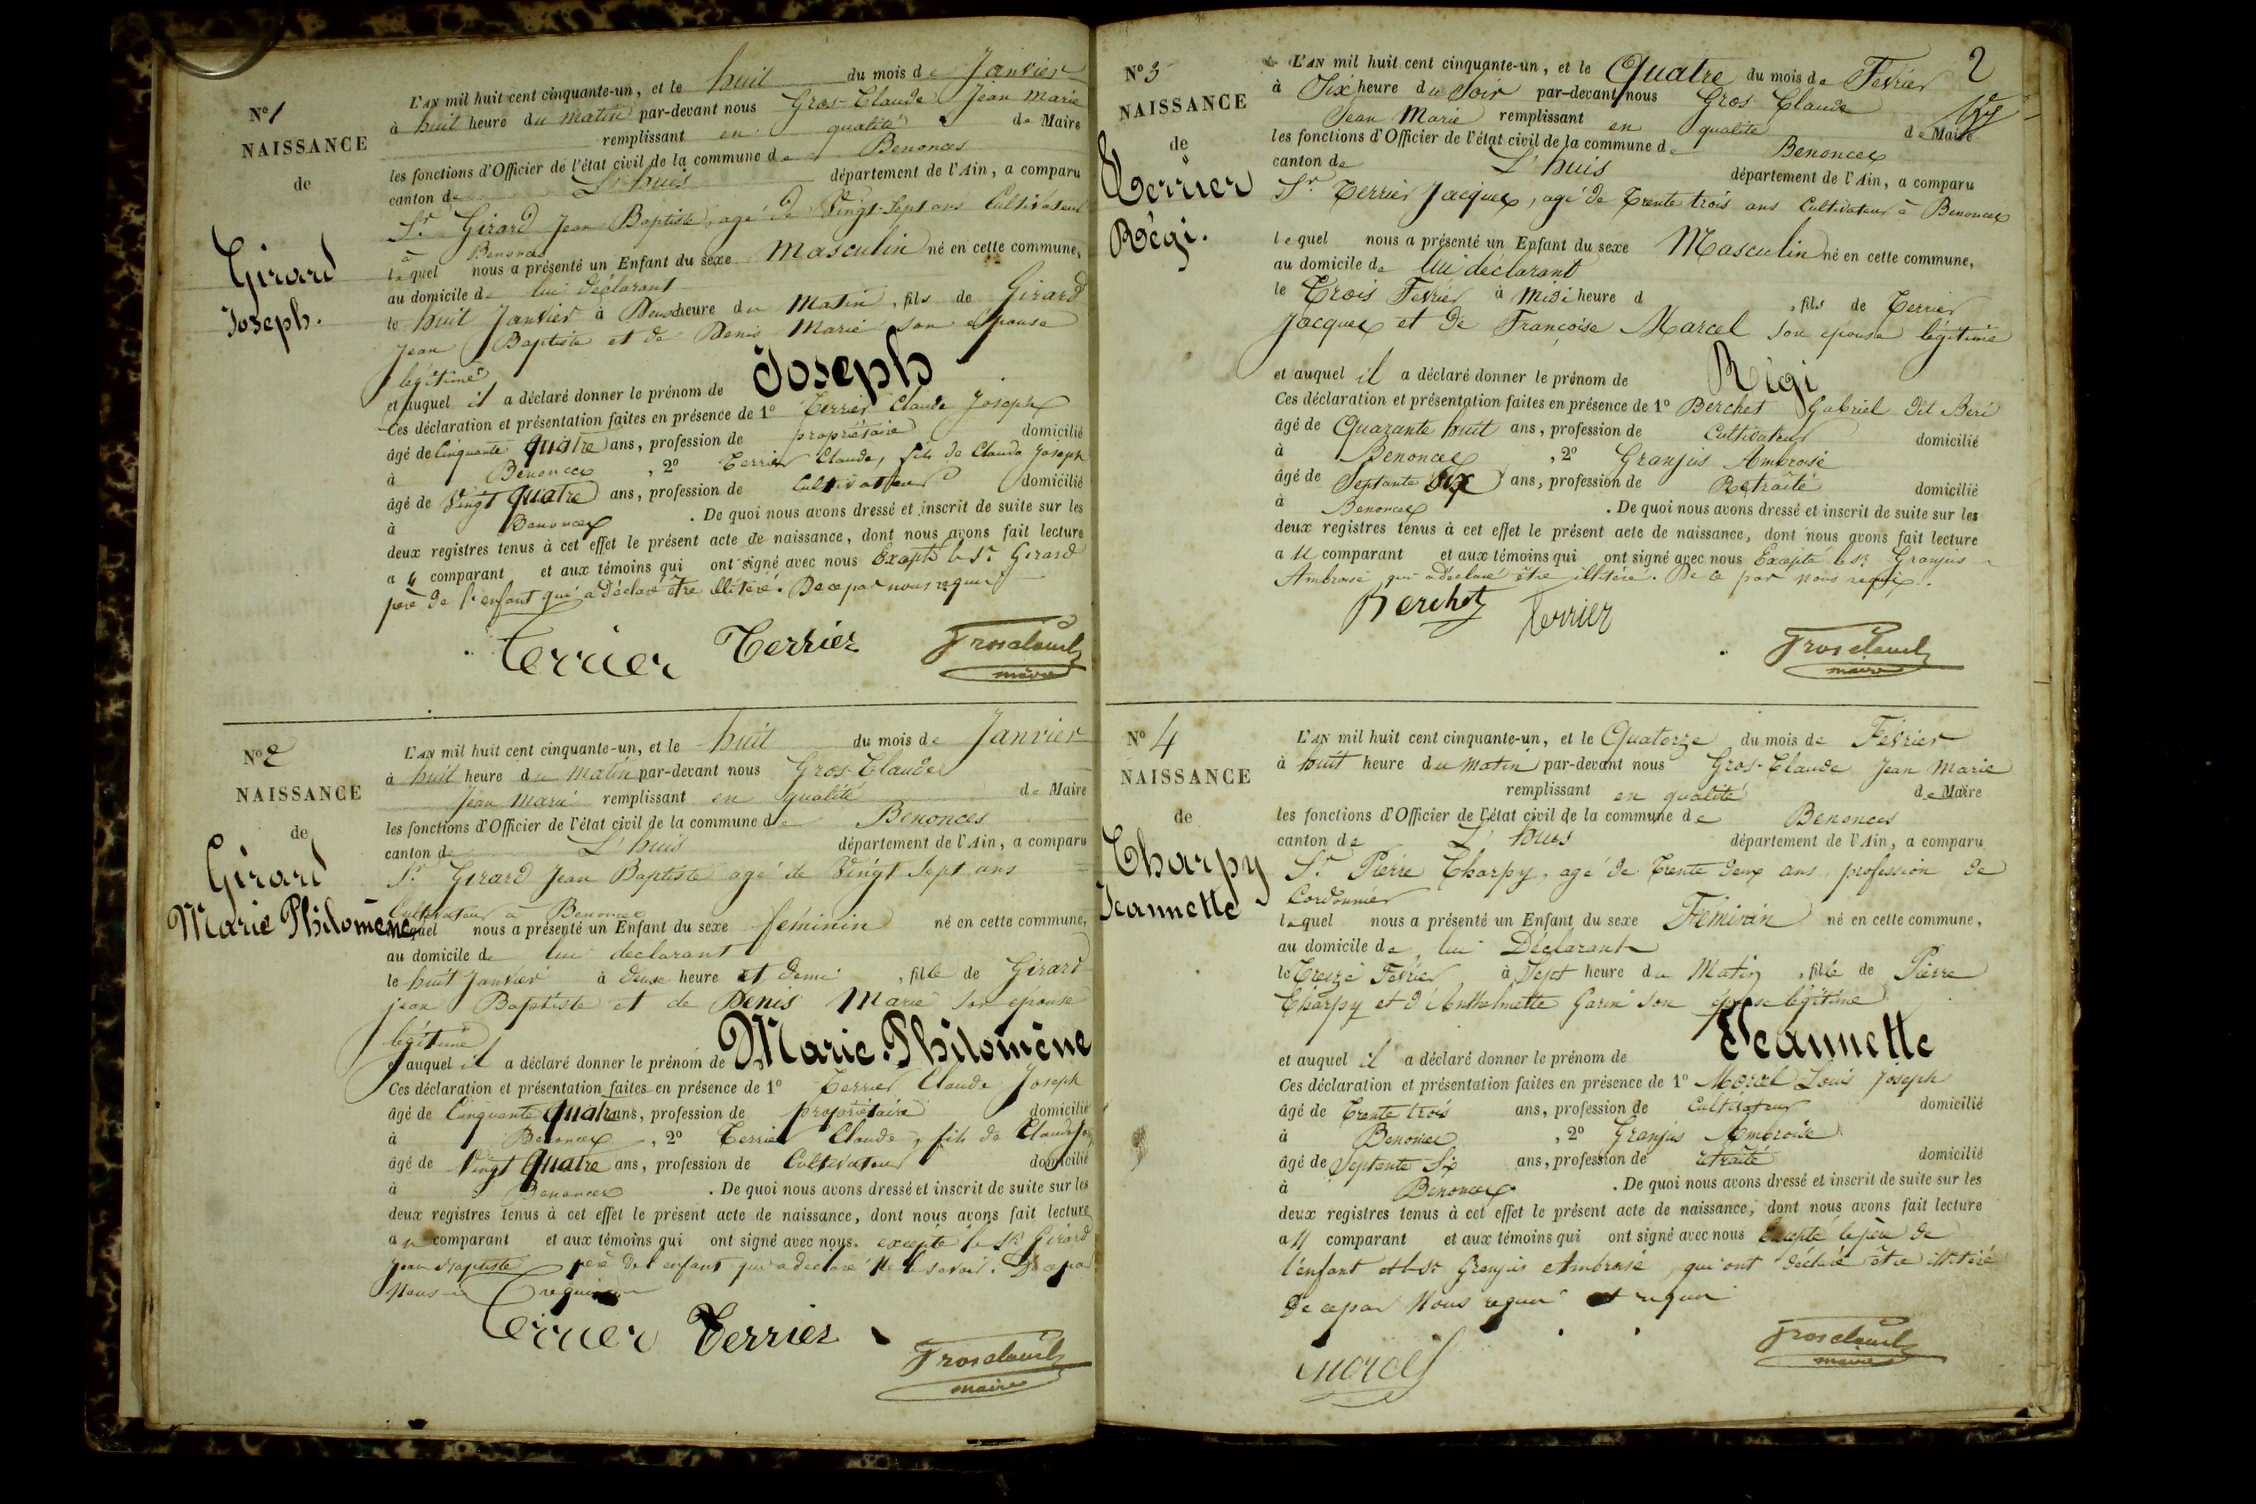 N° 1
NAISSANCE
de
Girard
Joseph.
L'AN mil huit cent cinquante-un, et le huit du mois de Janvier
à huit heure du matin par-devant nous Gros-Claude Jean Marie
remplissant en qualité de Maire
les fonctions d'Officier de l'état civil de la commune de Benonces
canton de L'huis département de l'Ain, a comparu
Sr. Girard Jean Baptiste, agé de Vingt-Sept ans Cultivateur
à Benonces
lequel nous a présenté un Enfant du sexe Masculin né en cette commune,
au domicile de lui déclarant
le huit Janvier à Deux heure du Matin, fils de Girard
Jean Baptiste et de Denis Marie son épouse
légitime
et auquel il a déclaré donner le prénom de Joseph
Ces déclaration et présentation faites en présence de 1° Terrier Claude Joseph
âgé de Cinquante quatre ans, profession de propriétaire domicilié
à Benonces, 2° Terrier Claude, fils de Claude Joseph
âgé de Vingt quatre ans, profession de Cultivateur domicilié
à Benonces. De quoi nous avons dressé et inscrit de suite sur les
deux registres tenus à cet effet le présent acte de naissance, dont nous avons fait lecture
a u comparant et aux témoins qui ont signé avec nous Excepté le Sr Girard
père de l'enfant qui a déclaré être illitéré. De ce par nous requis
Terrier Terrier Grosclaude
maire
N° 2
NAISSANCE
de
Girard
Marie Philomène
L'AN mil huit cent cinquante-un, et le huit du mois de Janvier
à huit heure du matin par-devant nous Gros-Claude
Jean Marie remplissant en qualité de Maire
les fonctions d'Officier de l'état civil de la commune de Benonces
canton de L'huis département de l'Ain, a comparu
Sr. Girard Jean Baptiste agé de Vingt Sept ans
Cultivateur à Benonces
lequel nous a présenté un Enfant du sexe feminin né en cette commune,
au domicile de lui déclarant
le huit Janvier à deux heure et demi, fille de Girard
jean Baptiste et de Denis Marie son épouse
légitime
et auquel il a déclaré donner le prénom de Marie-Philomène
Ces déclaration et présentation faites en présence de 1° Terrier Claude Joseph
âgé de Cinquante quatre ans, profession de propriétaire domicilié
à Benonces, 2° Terrier Claude, fils de Claude
âgé de Vingt quatre ans, profession de Cultivateur domicilié
à Benonces. De quoi nous avons dressé et inscrit de suite sur les
deux registres tenus à cet effet le présent acte de naissance, dont nous avons fait lecture
a u comparant et aux témoins qui ont signé avec nous. excepté le Sr Girard
jean Baptiste père de l'enfant qui a déclaré ne le savoir. De ce par
Nous requis
Terrier Terrier
Grosclaude
maire
2
N° 3
NAISSANCE
de
Terrier
Régi.
L'AN mil huit cent cinquante-un, et le Quatre du mois de Fevrier
à Six heure du Soir par-devant nous Gros Claude
Jean Marie remplissant en qualité de Maire
les fonctions d'Officier de l'état civil de la commune de Benonces
canton de L'huis département de l'Ain, a comparu
Sr Terrier Jacques, agé de Trente trois ans Cultivateur à Benonces
lequel nous a présenté un Enfant du sexe Masculin né en cette commune,
au domicile de lui déclarant
le Trois Fevrier à Midi heure d , fils de Terrier
Jacques et de Françoise Marcel son epouse légitime
et auquel il a déclaré donner le prénom de Régi
Ces déclaration et présentation faites en présence de 1° Berchet Gabriel dit Beri
âgé de Quarante huit ans, profession de Cultivateur domicilié
à Benonces, 2° Granjus Ambroise
âgé de Septante Six ans, profession de Retraité domicilié
à Benonces. De quoi nous avons dressé et inscrit de suite sur les
deux registres tenus à cet effet le présent acte de naissance, dont nous avons fait lecture
a u comparant et aux témoins qui ont signé avec nous Excepté le Sr Granjus
Ambroise qui a déclaré être illitéré. De ce par nous requis.
Berchet Terrier
Grosclaude
maire
N° 4
NAISSANCE
de
Charpy
Jeannette
L'AN mil huit cent cinquante-un, et le Quatorze du mois de Fevrier
à huit heure du matin par-devant nous Gros-Claude Jean Marie
remplissant en qualité de Maire
les fonctions d'Officier de l'état civil de la commune de Benonces
canton de L'huis département de l'Ain, a comparu
Sr. Pierre Charpy, agé de Trente deux ans, profession de
Cordonnier
lequel nous a présenté un Enfant du sexe Féminin né en cette commune,
au domicile de lui Déclarant
le Treize Fevrier à Sept heure du Matin, fille de Pierre
Charpy et d'Anthelmette Garin son épouse légitime
et auquel il a déclaré donner le prénom de Jeannette
Ces déclaration et présentation faites en présence de 1° Marcel Louis Joseph
âgé de Trente trois ans, profession de Cultivateur domicilié
à Benonces, 2° Granjus Ambroise
âgé de Septante Six ans, profession de retraité domicilié
à Benonces. De quoi nous avons dressé et inscrit de suite sur les
deux registres tenus à cet effet le présent acte de naissance, dont nous avons fait lecture
a u comparant et aux témoins qui ont signé avec nous Excepté le père de
l'enfant et le Sr Granjus Ambroise, qui ont déclaré être illitéré
De ce par Nous requis et requis
Marcel
Grosclaude
maire